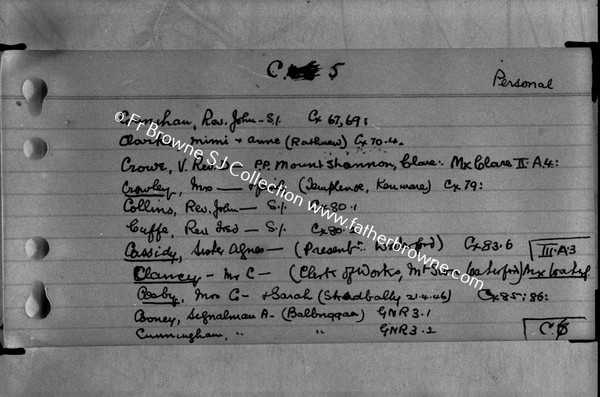 C. 5
Personal
Rev. John - S.J. Cx 67, 69:
Mimi + Anne (Rathnew) Cx 70.4.
Crowe, V. Rev. P.P. Mount Shannon, Clare. Mx Clare II. A4:
Crowley, Mrs — (Templenoe, Kenmare) Cx 79:
Collins, Rev. John — S.J. Cx 80.1
Cuffe, Rev — S.J. Cx 80.
Cassidy, Sister Agnes — (Present: Waterford) Cx 83.6 III.A3
Clancy - Mr C — (Clerk of Works, Mt
Mrs C — + Sarah (Stradbally 21.4.46) Cx 85; 86:
Signalman A - (Balbriggan) GNR 3.1
Cunningham, " " GNR 3.2
© Fr Browne S.J. Collection www.fatherbrowne.com